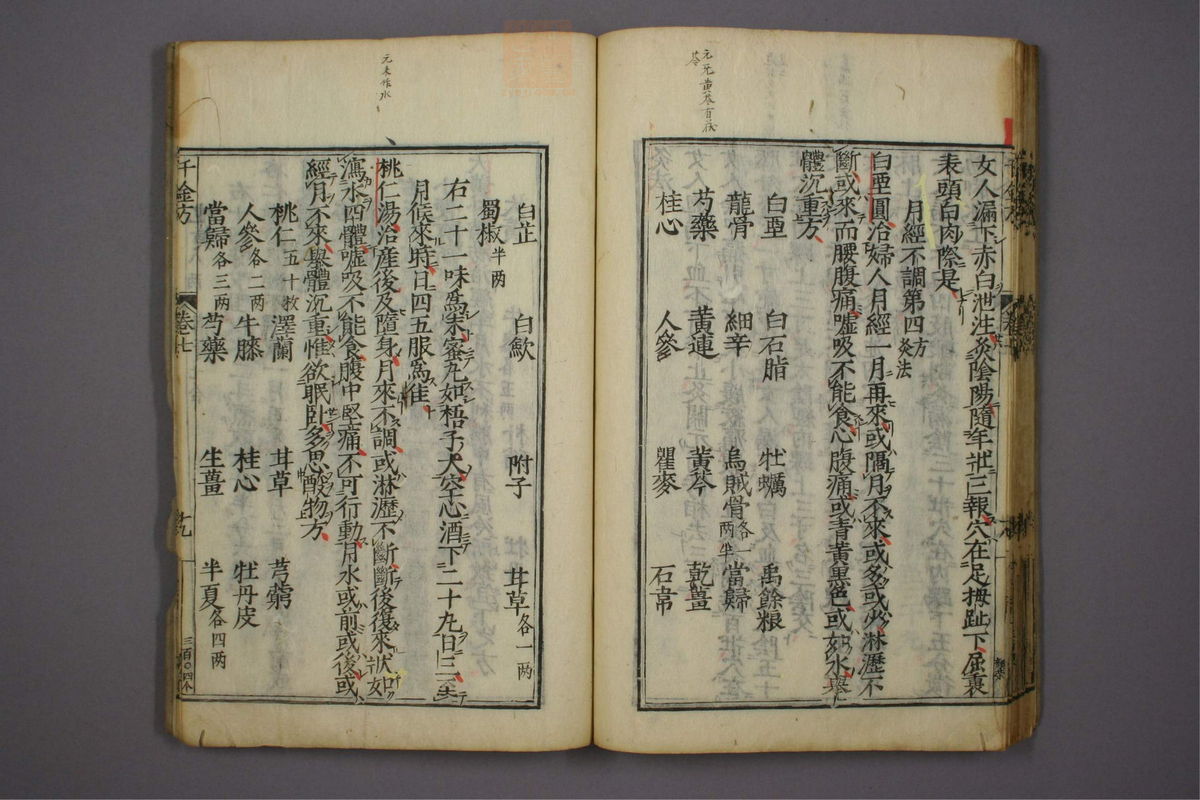 元无黄芩有茯
苓
女人漏下赤白泄注灸陰陽隨年壯三報穴在足拇趾下屈裏
表頭白肉際是
月經不調第四方灸法
白堊圓治婦人月經一月再來或隔月不來或多或少淋瀝不
斷或來而腰腹痛噓吸不能食心腹痛或青黄黒色或如水舉
體沉重方
白堊 白石脂 牡蠣 禹餘粮
龍骨 細辛 烏賊骨各一两半 當歸
芍藥 黄連 黄芩 乾薑
桂心 人參 瞿麥 石韋
元末作水
白芷 白歛 附子 甘草各一两
蜀椒半两
右二十一味爲末蜜丸如梧子大空心酒下二十丸日三
月候來時日四五服爲佳
桃仁湯治産後及墮身月來不調或淋瀝不斷斷後復來狀如
瀉水四體噓吸不能食腹中堅痛不可行動月水或前或後或
經月不來舉體沉重惟欲眠卧多思酸物方
桃仁五十枚 澤蘭 甘草 芎藭
人參各二两 牛膝 桂心 牡丹皮
當歸各三两 芍藥 生薑 半夏各四两
千金方 卷七 十九 三百〇四个